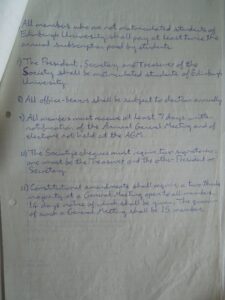 All members who are not matriculated students of
Edinburgh University shall pay at least twice the
annual subscription paid by students.
The President, Secretary and Treasurer of the
Society shall be matriculated students of Edinburgh
University.
All office-bearers shall be subject to election annually
All members must receive at least 7 days written
notification of the Annual General Meeting and of
elections not held at the AGM.
The Society's cheques must require two signatories:
one must be the Treasurer and the other President or
Secretary.
Constitutional amendments shall require a two thirds
majority at a General Meeting open to all members.
14 days notice of which shall be given. The quorum
of such a General Meeting shall be 15 members.